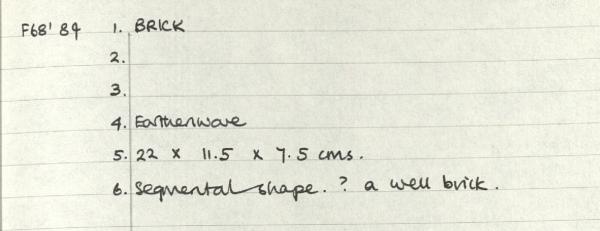 F68' 84 1. BRICK
2.
3.
4. Earthenware
5. 22 x 11.5 x 7.5 cms.
6. Segmental shape. ? a well brick.